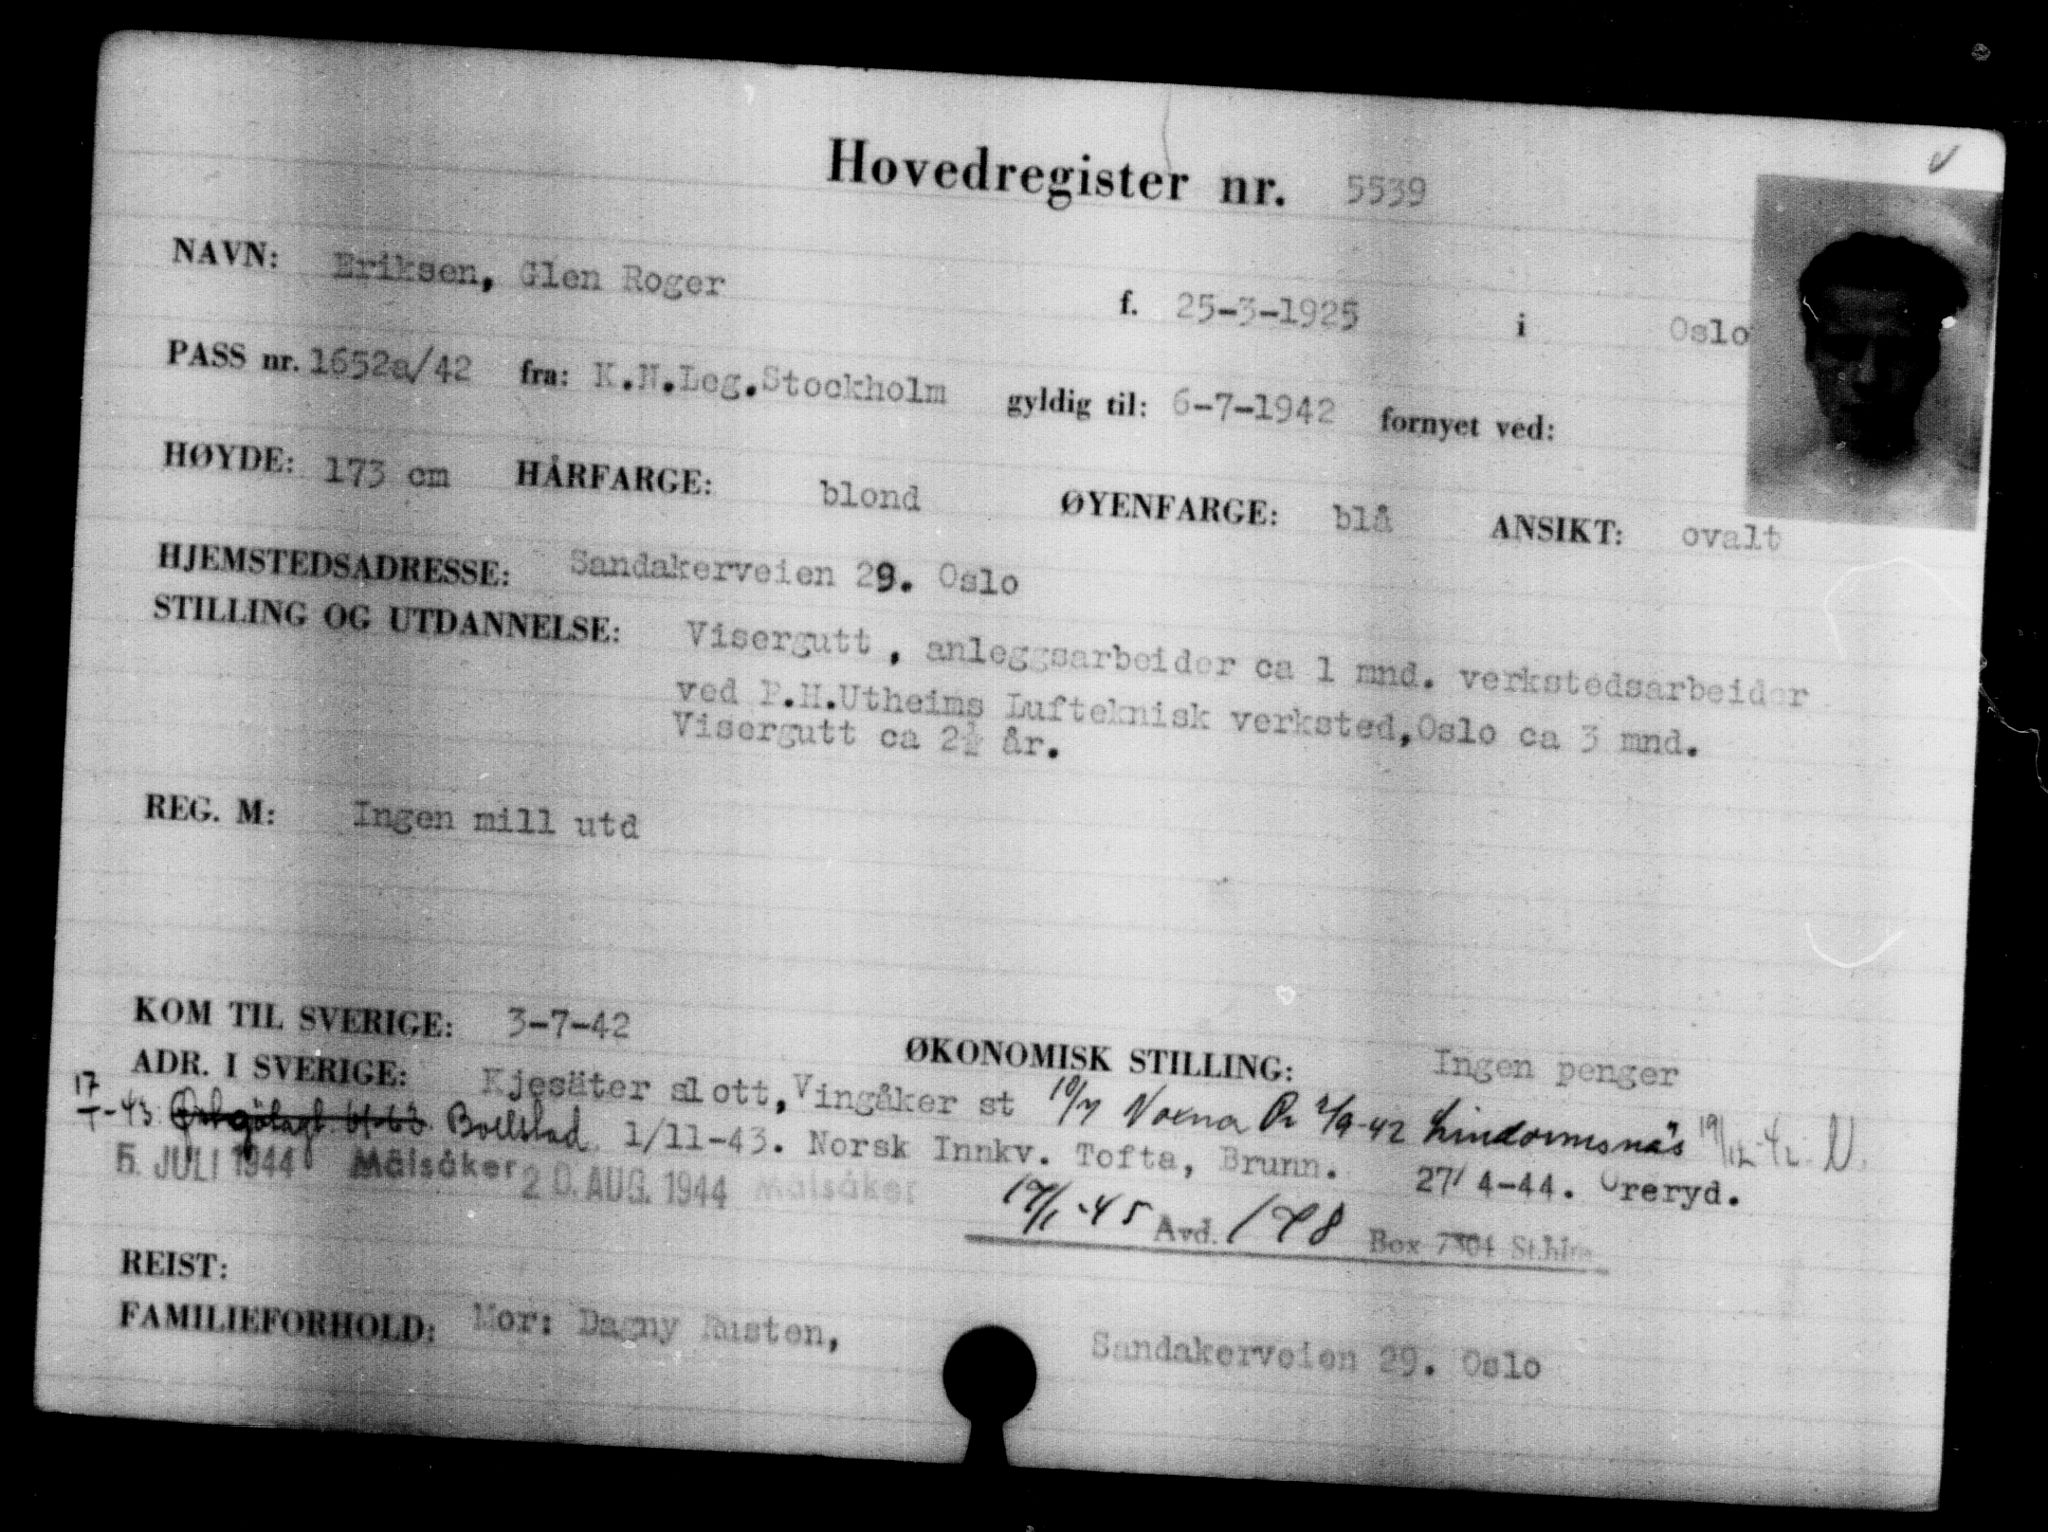 Hovedregister nr. 5539
NAVN: Eriksen, Glen Roger f. 25-3-1925 i Oslo
PASS nr. 1652a/42 fra: K.N.Leg.Stockholm gyldig til: 6-7-1942 fornyet ved:
HØYDE: 173 cm HÅRFARGE: blond ØYENFARGE: blå ANSIKT: ovalt
HJEMSTEDSADRESSE: Sandakerveien 29. Oslo
STILLING OG UTDANNELSE: Visergutt , anleggsarbeider ca 1 mnd. verkstedsarbeider
ved P.H.Utheims Lufteknisk verksted,Oslo ca 3 mnd.
Visergutt ca 2½ år.
REG. M: Ingen mill utd
KOM TIL SVERIGE: 3-7-42 ØKONOMISK STILLING: Ingen penger
ADR. I SVERIGE: Kjesäter slott,Vingåker st 10/7 2/9-42 Lindormsnäs 19/12-42
17/ -43 1/11-43. Norsk Innkv. Tofta, Brunn. 27/4-44. Öreryd.
5. JULI 1944 Mälsåker 20. AUG. 1944 Mälsåker
17/1-45 Avd. 178 Box 7304 Sthlm
REIST:
FAMILIEFORHOLD: Mor: Dagny Rusten, Sandakerveien 29. Oslo